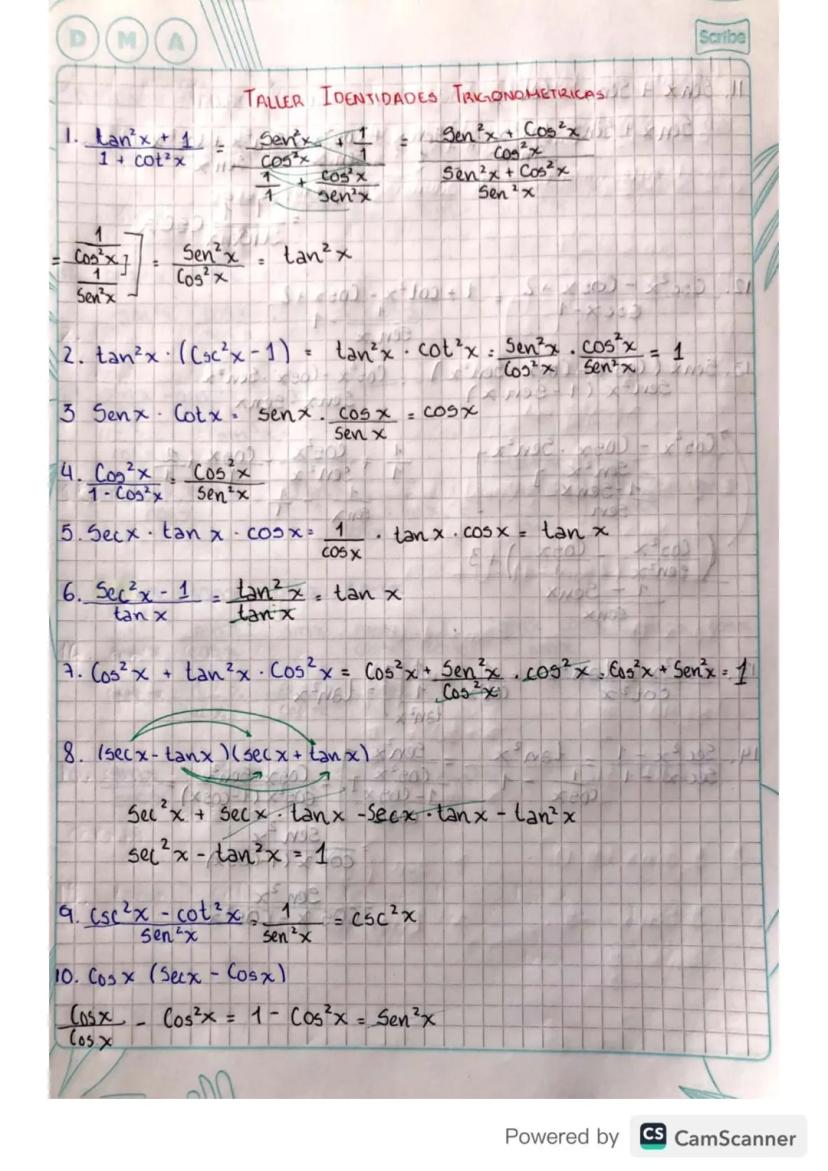 D M A
Scribe
TALLER IDENTIDADES TRIGONOMETRICAS
1. tan²x + 1 / 1 + cot²x = (sen²x / cos²x + 1/1) / (1/1 + cos²x / sen²x) = (Sen²x + Cos²x / Cos²x) / (Sen²x + Cos²x / Sen²x)
= (1 / Cos²x) / (1 / Sen²x) = Sen²x / Cos²x = tan²x
2. tan²x · (Csc²x - 1) = tan²x · cot²x = Sen²x / Cos²x · Cos²x / Sen²x = 1
3 Senx · Cotx = senx · cosx / senx = cosx
4. Cos²x / 1 - Cos²x = Cos²x / Sen²x
5. Secx · tan x · cosx = 1 / cosx · tanx · cosx = tan x
6. Sec²x - 1 / tan x = tan²x / tan x = tan x
7. Cos²x + tan²x · Cos²x = Cos²x + Sen²x / Cos²x · cos²x = Cos²x + Sen²x = 1
8. (secx - tanx)(secx + tanx)
sec²x + secx · tanx - secx · tanx - tan²x
sec²x - tan²x = 1
9. csc²x - cot²x / sen²x = 1 / sen²x = csc²x
10. Cosx (Secx - Cosx)
Cosx / Cosx - Cos²x = 1 - Cos²x = Sen²x
Powered by CS CamScanner